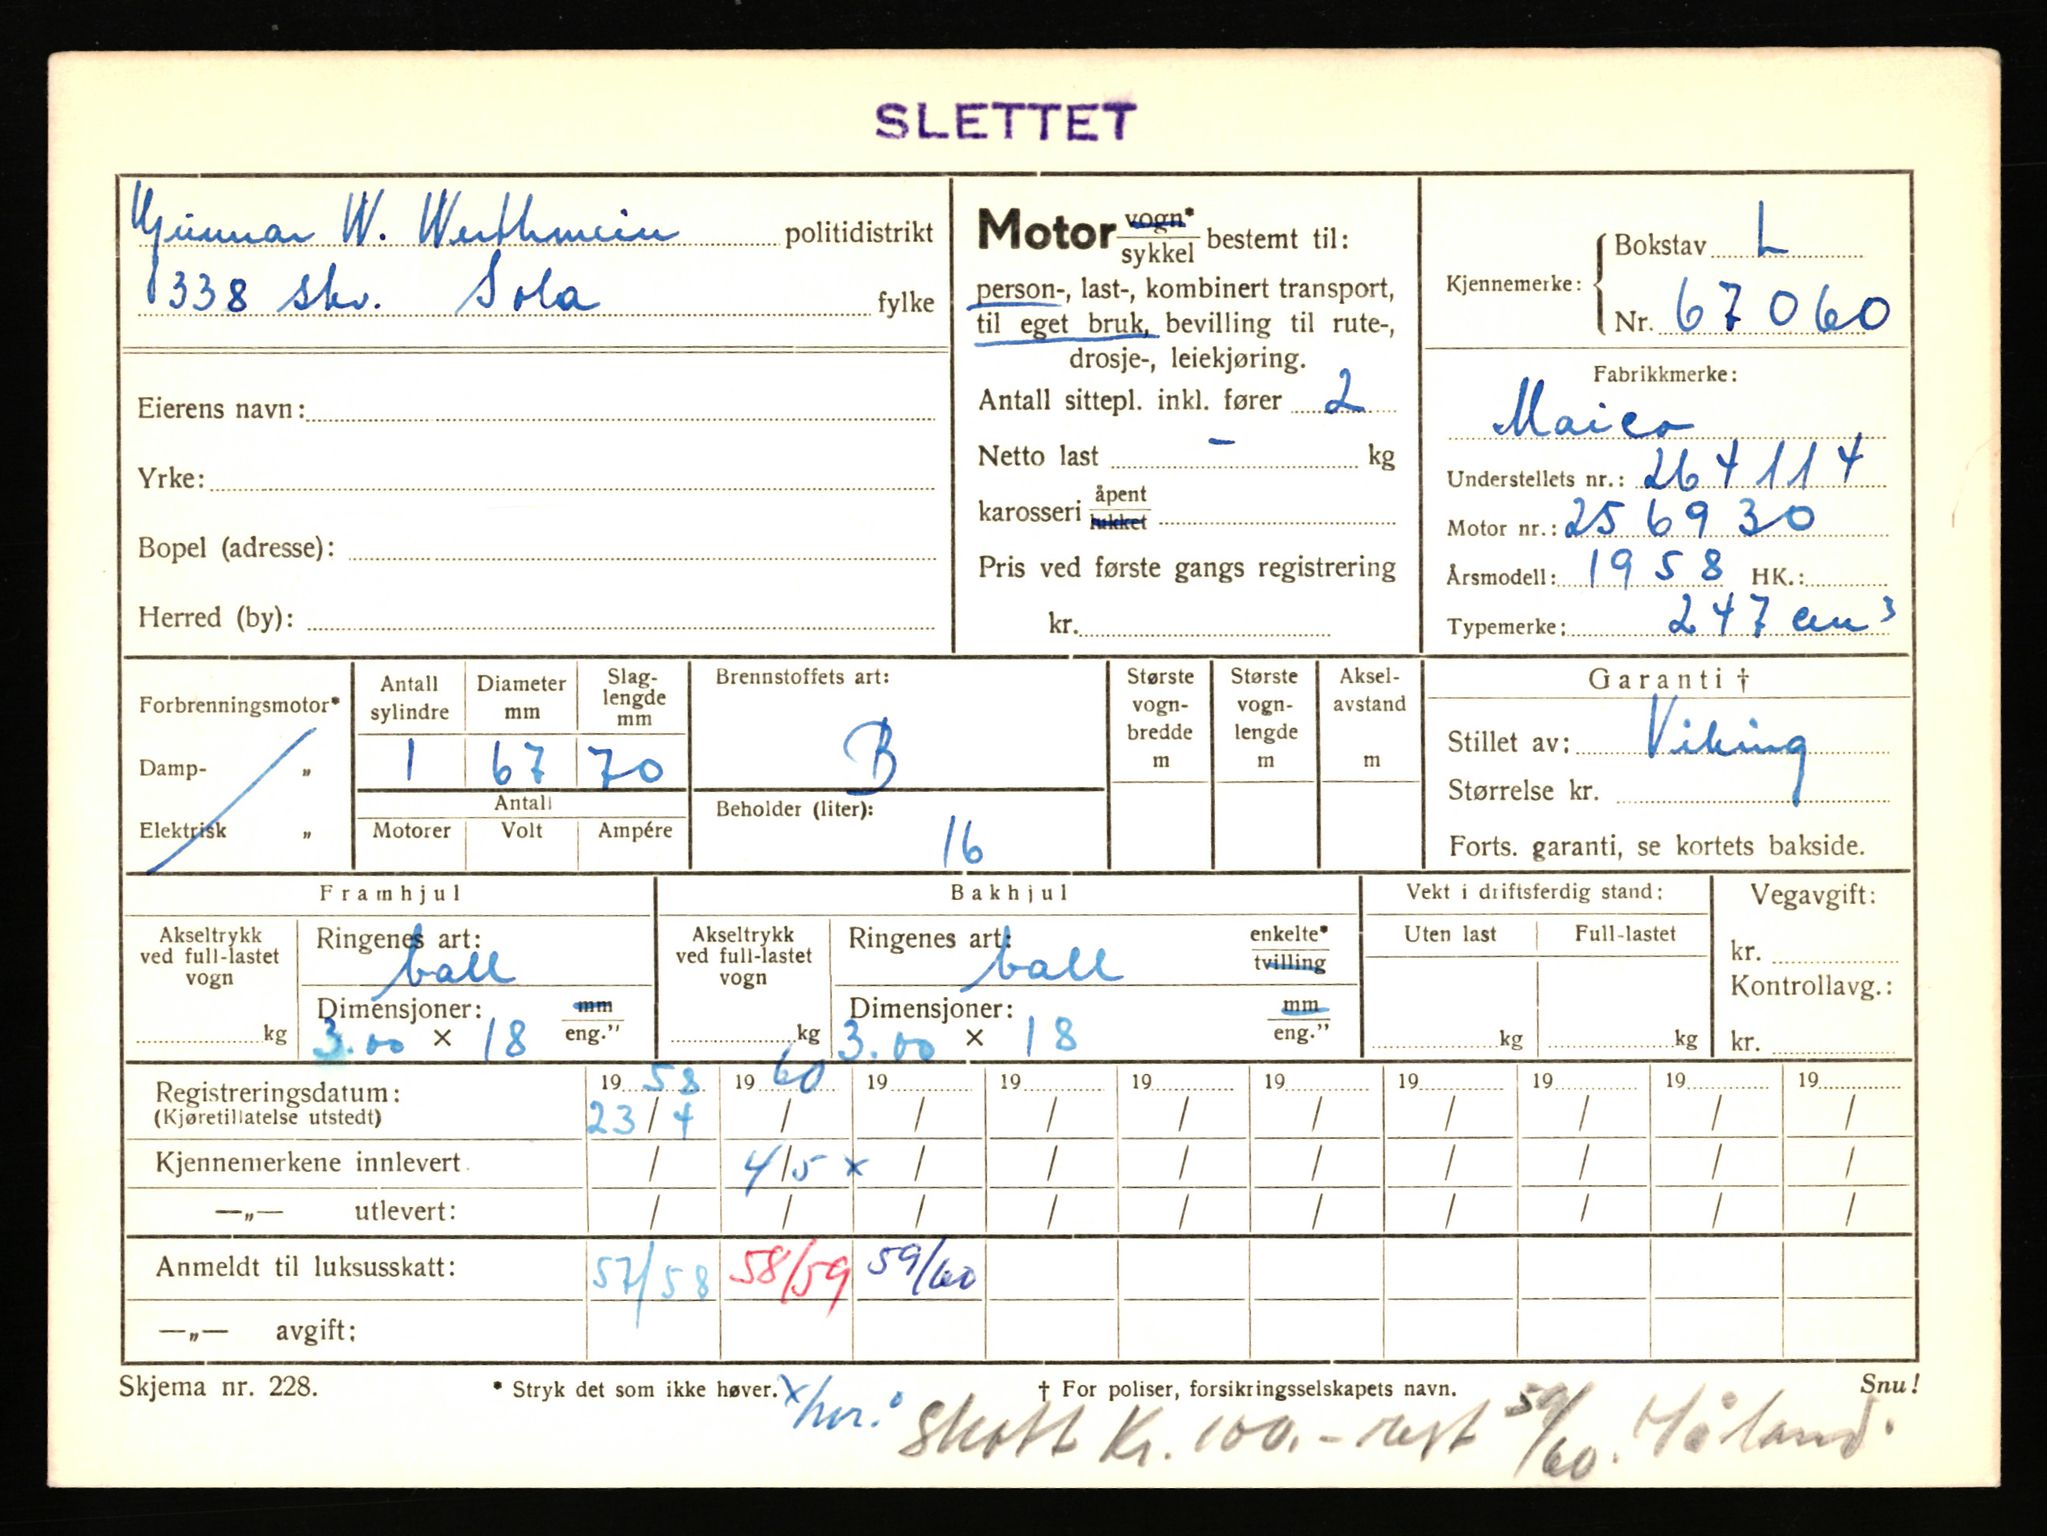 SLETTET
Gunnar W. Werthmein politidistrikt
338 skv. Sola fylke
Eierens navn:
Yrke:
Bopel (adresse):
Herred (by):
Motor vogn*
sykkel bestemt til:
person-, last-, kombinert transport,
til eget bruk, bevilling til rute-,
drosje-, leiekjøring.
Antall sittepl. inkl. fører 2
Netto last - kg
karosseri åpent
lukket
Pris ved første gangs registrering
kr.
Kjennemerke: Bokstav L
Nr. 67060
Fabrikkmerke:
Maico
Understellets nr.: 264114
Motor nr.: 256930
Årsmodell: 1958 HK.:
Typemerke: 247 cm³
Forbrenningsmotor*
Damp- „
Elektrisk „
Antall sylindre
Diameter mm
Slag-lengde mm
1 67 70
Antall
Motorer Volt Ampére
Brennstoffets art:
B
Beholder (liter):
16
Største vogn-bredde m
Største vogn-lengde m
Aksel-avstand m
Garanti †
Stillet av: Viking
Størrelse kr.
Forts. garanti, se kortets bakside.
Framhjul
Akseltrykk ved full-lastet vogn
kg
Ringenes art: ball
Dimensjoner: mm
3.00 × 18 eng."
Bakhjul
Akseltrykk ved full-lastet vogn
kg
Ringenes art: ball enkelte*
tvilling
Dimensjoner: mm
3.00 × 18 eng."
Vekt i driftsferdig stand:
Uten last Full-lastet
kg kg
Vegavgift:
kr.
Kontrollavg.:
kr.
Registreringsdatum: 19 58 19 60 19 19 19 19 19 19 19 19
(Kjøretillatelse utstedt) 23/4 / / / / / / / / /
Kjennemerkene innlevert / 4/5 x / / / / / / / /
—„— utlevert: / / / / / / / / / /
Anmeldt til luksusskatt: 57/58 58/59 59/60
—„— avgift:
Skjema nr. 228. * Stryk det som ikke høver. † For poliser, forsikringsselskapets navn. Snu!
Skatt Kr. 100.- rest 59/60. Håland.